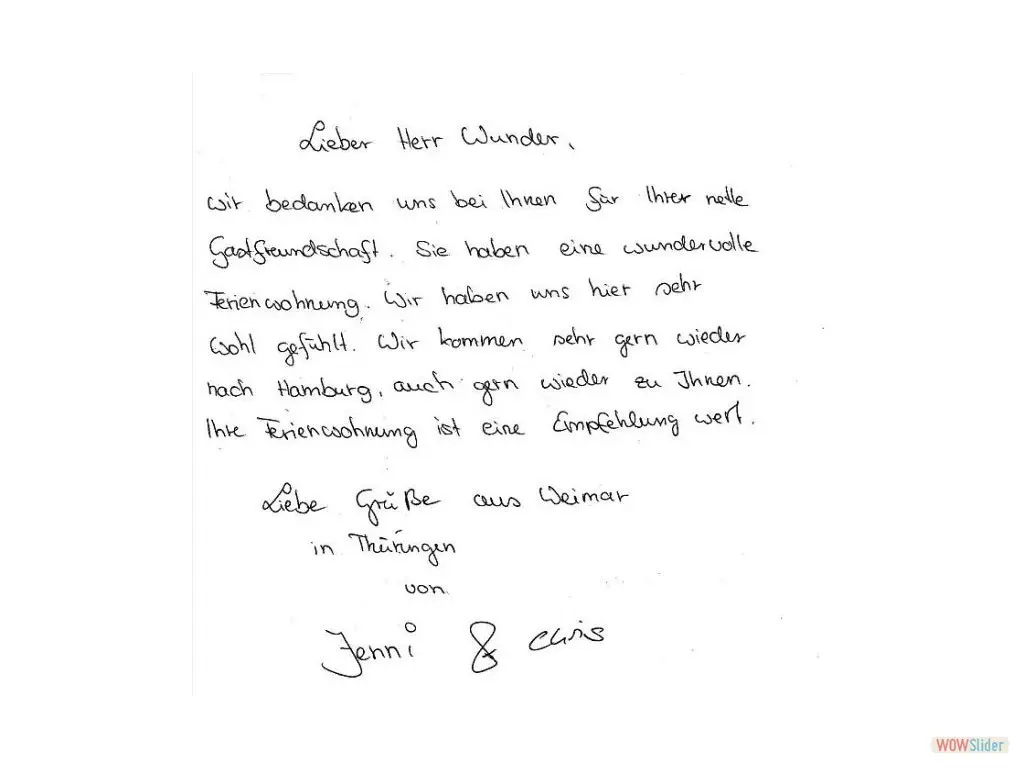 Lieber Herr Wunder,
wir bedanken uns bei Ihnen für Ihrer nette
Gastfreundschaft. Sie haben eine wundervolle
Ferienwohnung. Wir haben uns hier sehr
wohl gefühlt. Wir kommen sehr gern wieder
nach Hamburg, auch gern wieder zu Ihnen.
Ihre Ferienwohnung ist eine Empfehlung wert.
Liebe Grüße aus Weimar
in Thüringen
von
Jenni & Chris
WOWSlider